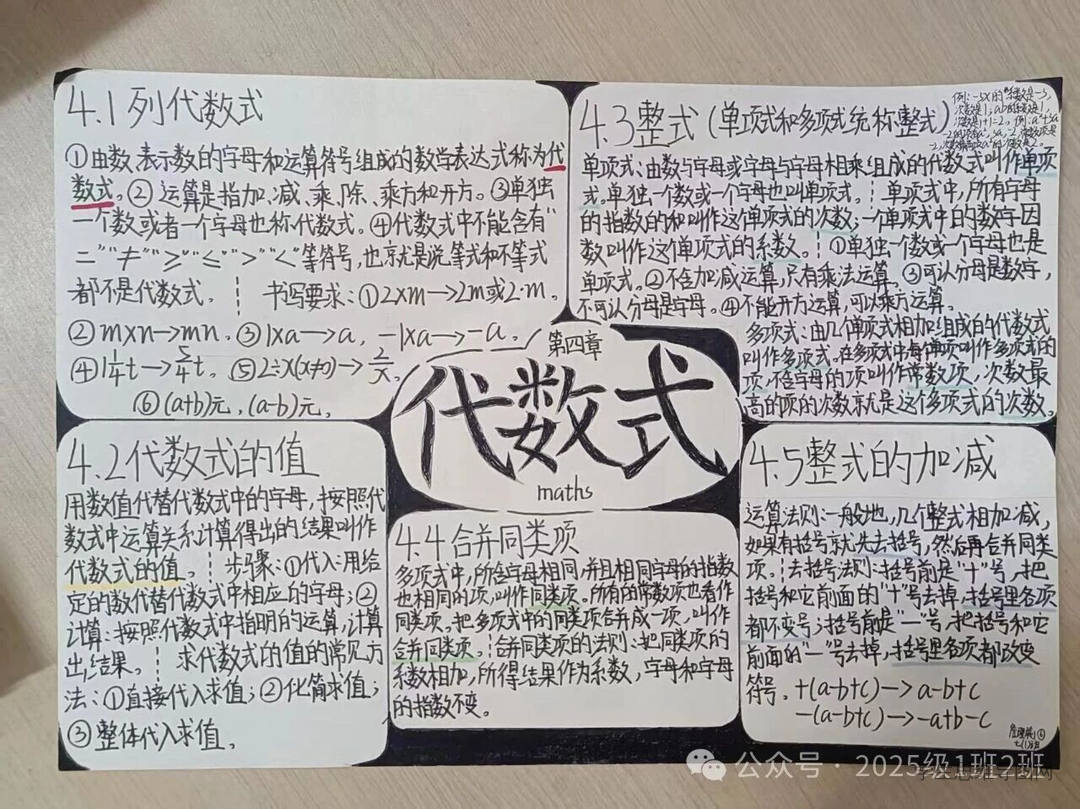 4.1 列代数式
①由数、表示数的字母和运算符号组成的数学表达式称为代
数式。②运算是指加、减、乘、除、乘方和开方。③单独
一个数或者一个字母也称代数式。④代数式中不能含有“
=”“≠”“≥”“≤”“>”“<”等符号,也就是说等式和不等式
都不是代数式。 书写要求:①2×m→2m或2·m。
②m×n→mn。③1×a→a,-1×a→-a。
④1 1/4 t→5/4 t。⑤2÷x(x≠0)→2/x。
⑥(a+b)元,(a-b)元。
4.2代数式的值
用数值代替代数式中的字母,按照代
数式中运算关系计算得出的结果叫作
代数式的值。 步骤:①代入:用给
定的数代替代数式中相应的字母;②
计算:按照代数式中指明的运算,计算
出结果。 求代数式的值的常见方
法:①直接代入求值;②化简求值;
③整体代入求值。
第四章
代数式
maths
4.3整式(单项式和多项式统称整式)
例:-3x的系数是-3,
单项式:由数与字母或字母与字母相乘组成的代数式叫作单项
式。单独一个数或一个字母也叫单项式。 单项式中,所有字母
的指数的和叫作这个单项式的次数;一个单项式中的数字因
数叫作这个单项式的系数。 ①单独一个数或一个字母也是
单项式。②不含加减运算,只有乘法运算。③可以分母是数字,
不可以分母是字母。④不能开方运算,可以乘方运算。
多项式:由几个单项式相加组成的代数式
叫作多项式。在多项式中每个单项叫作多项式的
项,不含字母的项叫作常数项,次数最
高的项的次数就是这个多项式的次数。
4.4合并同类项
多项式中,所含字母相同,并且相同字母的指数
也相同的项,叫作同类项。所有的常数项也看作
同类项。把多项式中的同类项合并成一项,叫作
合并同类项。 合并同类项的法则:把同类项的
系数相加,所得结果作为系数,字母和字母
的指数不变。
4.5整式的加减
运算法则:一般地,几个整式相加减,
如果有括号就先去括号,然后再合并同类
项。 去括号法则:括号前是“+”号,把
括号和它前面的“+”号去掉,括号里各项
都不变号;括号前是“-”号,把括号和它
前面的“-”号去掉,括号里各项都改变
符号。+(a-b+c)→a-b+c
-(a-b+c)→-a+b-c
公众号·2025级1班2班